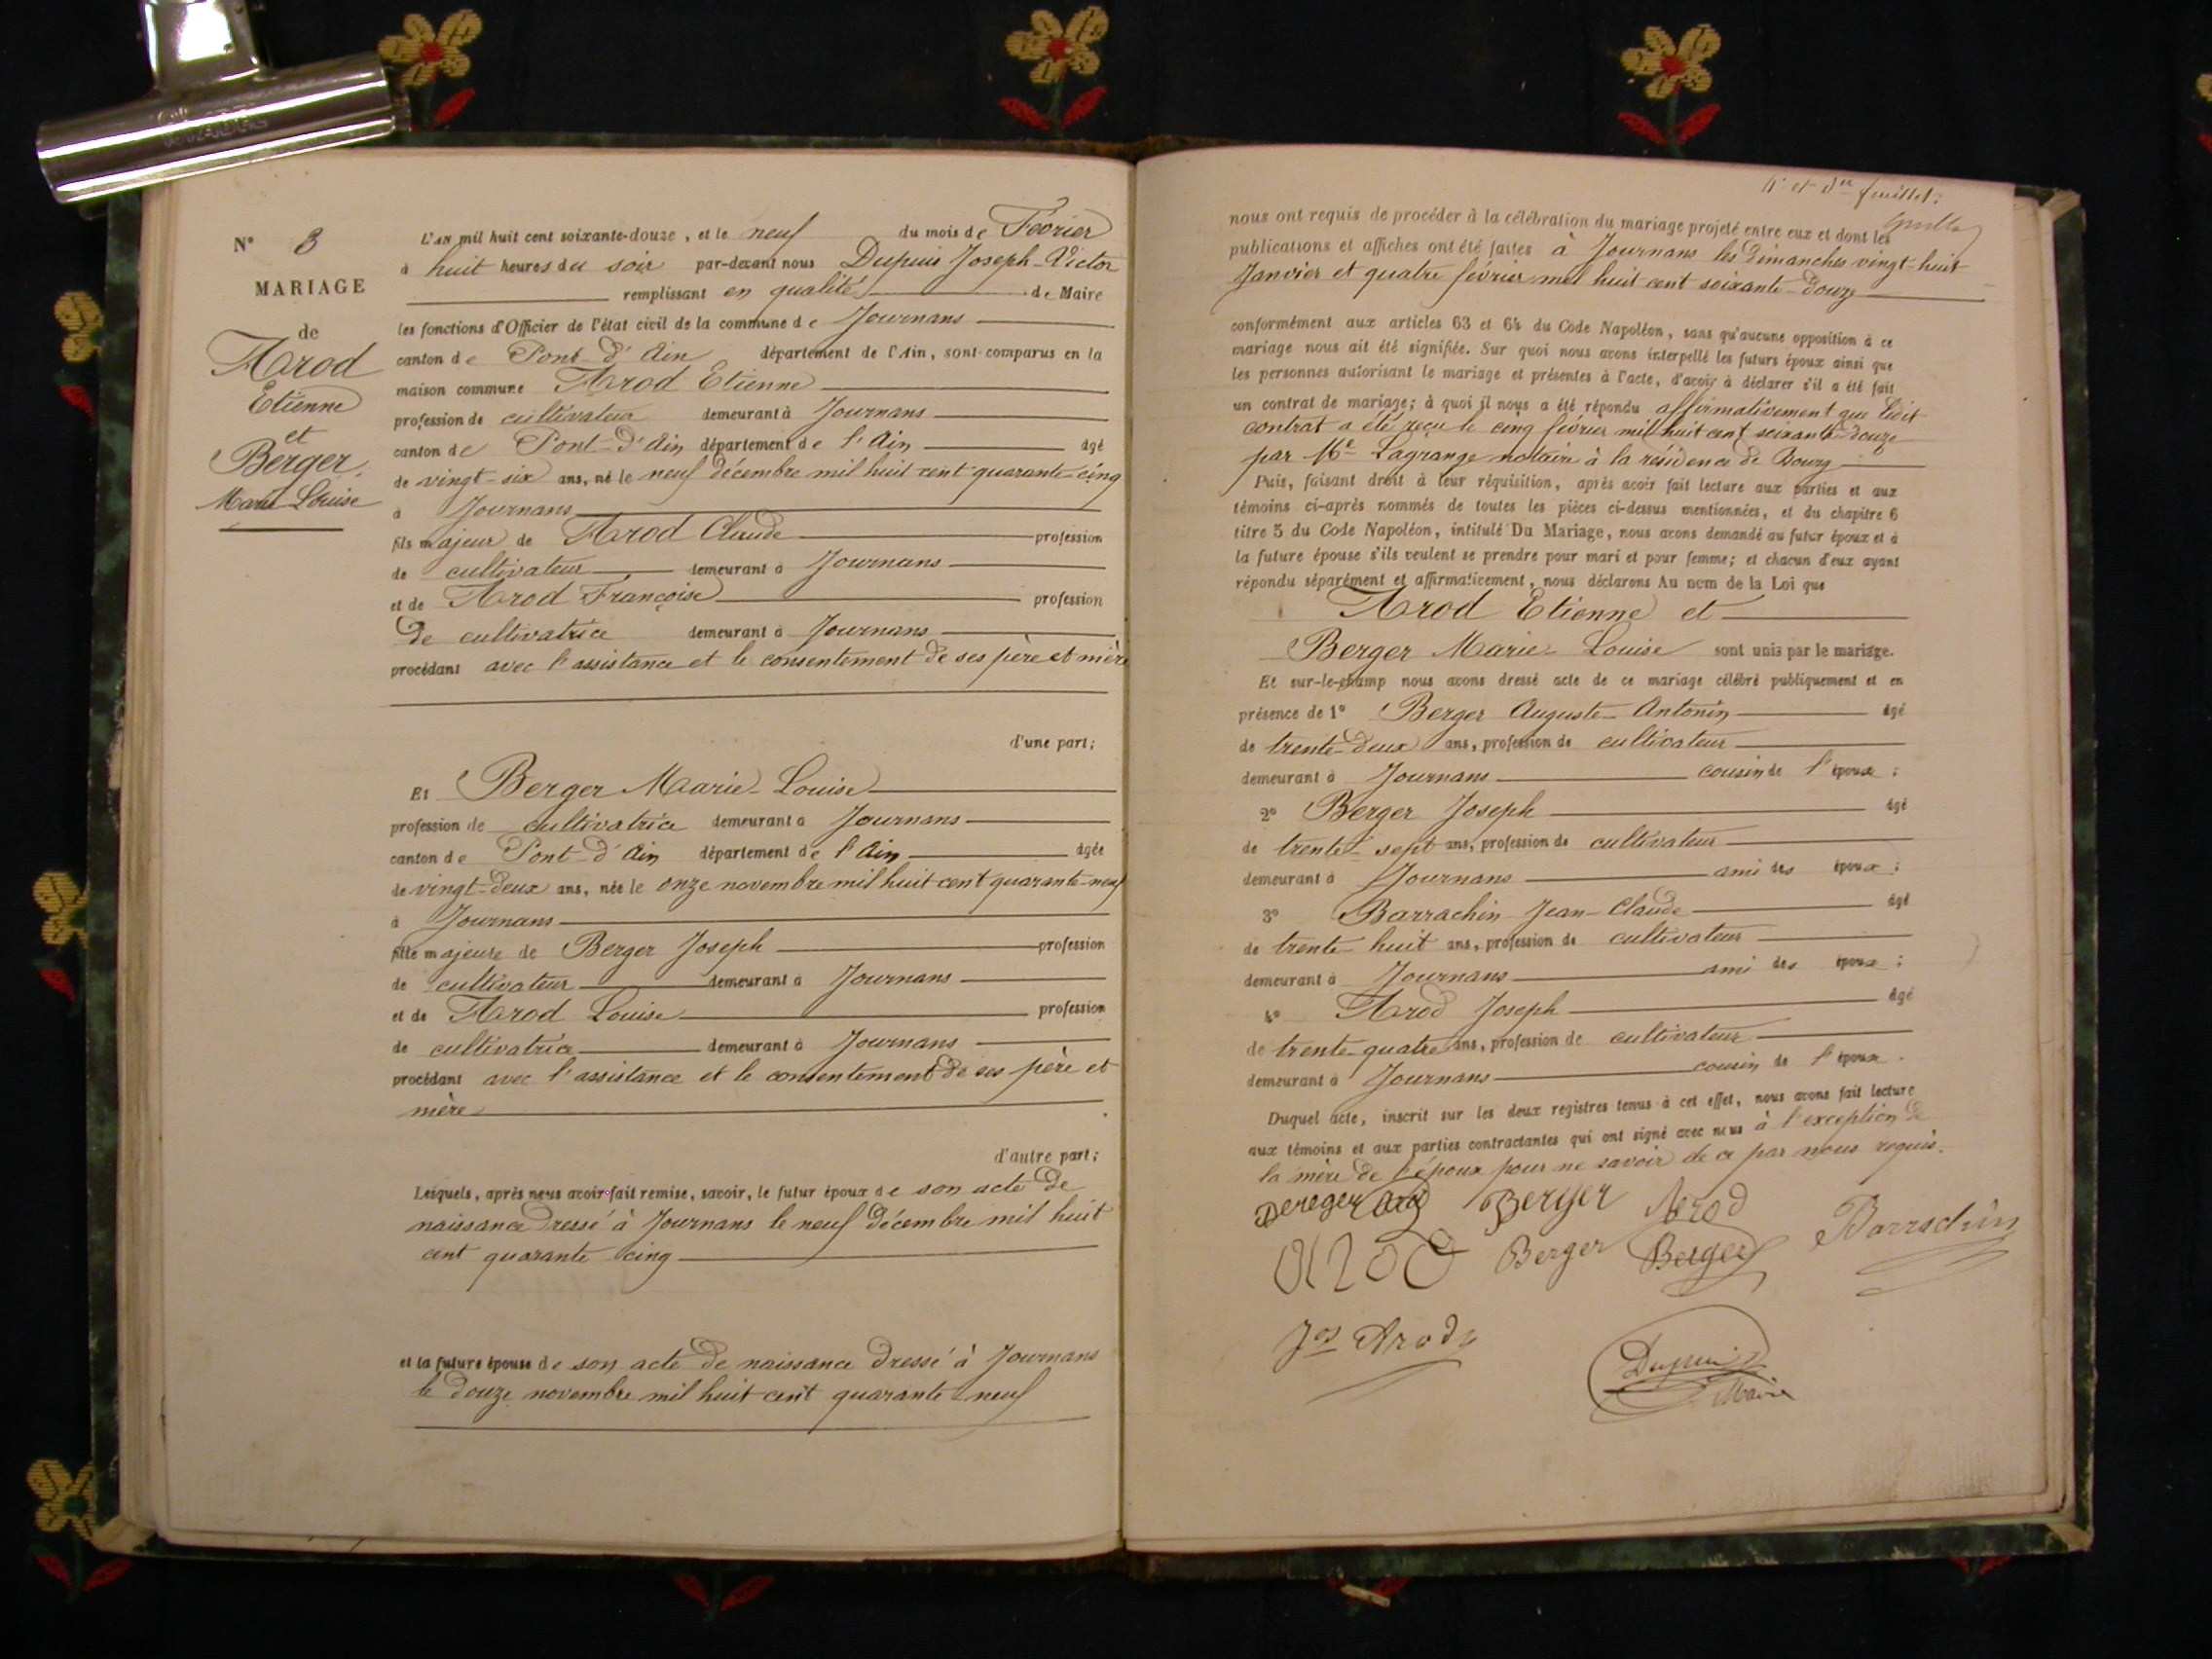 N° 3
MARIAGE
de
Arod
Etienne
et
Berger
Marie Louise
L'AN mil huit cent soixante-douze, et le neuf du mois de Février
à huit heures du soir par-devant nous Dupuis Joseph-Victor
remplissant en qualité de Maire
les fonctions d'Officier de l'état civil de la commune de Journans
canton de Pont-d'Ain département de l'Ain, sont comparus en la
maison commune Arod Etienne
profession de cultivateur demeurant à Journans
canton de Pont-d'Ain département de l'Ain âgé
de vingt-six ans, né le neuf décembre mil huit cent quarante-cinq
à Journans
fils majeur de Arod Claude profession
de cultivateur demeurant à Journans
et de Arod Françoise profession
de cultivatrice demeurant à Journans
procédant avec l'assistance et le consentement de ses père et mère
d'une part;
Et Berger Marie-Louise
profession de cultivatrice demeurant à Journans
canton de Pont-d'Ain département de l'Ain âgée
de vingt-deux ans, née le onze novembre mil huit cent quarante-neuf
à Journans
fille majeure de Berger Joseph profession
de cultivateur demeurant à Journans
et de Arod Louise profession
de cultivatrice demeurant à Journans
procédant avec l'assistance et le consentement de ses père et
mère
d'autre part;
Lesquels, après nous avoir fait remise, savoir, le futur époux de son acte de
naissance dressé à Journans le neuf décembre mil huit
cent quarante cinq
et la future épouse de son acte de naissance dressé à Journans
le douze novembre mil huit cent quarante neuf
4e et der feuillet:
nous ont requis de procéder à la célébration du mariage projeté entre eux et dont les
publications et affiches ont été faites à Journans les dimanches vingt-huit
Janvier et quatre février mil huit cent soixante-douze
conformément aux articles 63 et 64 du Code Napoléon, sans qu'aucune opposition à ce
mariage nous ait été signifiée. Sur quoi nous avons interpellé les futurs époux ainsi que
les personnes autorisant le mariage et présentes à l'acte, d'avoir à déclarer s'il a été fait
un contrat de mariage; à quoi il nous a été répondu affirmativement que ledit
contrat a été reçu le cinq février mil huit cent soixante-douze
par Me Lagrange notaire à la résidence de Bourg
Puis, faisant droit à leur réquisition, après avoir fait lecture aux parties et aux
témoins ci-après nommés de toutes les pièces ci-dessus mentionnées, et du chapitre 6
titre 5 du Code Napoléon, intitulé Du Mariage, nous avons demandé au futur époux et à
la future épouse s'ils veulent se prendre pour mari et pour femme; et chacun d'eux ayant
répondu séparément et affirmativement, nous déclarons Au nom de la Loi que
Arod Etienne et
Berger Marie-Louise sont unis par le mariage.
Et sur-le-champ nous avons dressé acte de ce mariage célébré publiquement et en
présence de 1° Berger Auguste-Antonin âgé
de trente-deux ans, profession de cultivateur
demeurant à Journans cousin de l'époux;
2° Berger Joseph âgé
de trente-sept ans, profession de cultivateur
demeurant à Journans ami des époux;
3° Barrachin Jean-Claude âgé
de trente-huit ans, profession de cultivateur
demeurant à Journans ami des époux;
4° Arod Joseph âgé
de trente-quatre ans, profession de cultivateur
demeurant à Journans cousin de l'époux.
Duquel acte, inscrit sur les deux registres tenus à cet effet, nous avons fait lecture
aux témoins et aux parties contractantes qui ont signé avec nous à l'exception de
la mère de l'époux pour ne savoir de ce par nous requis.
Berger Arod
Barrachin
Arod Berger Berger
Jos Arod
Dupuis
Maire